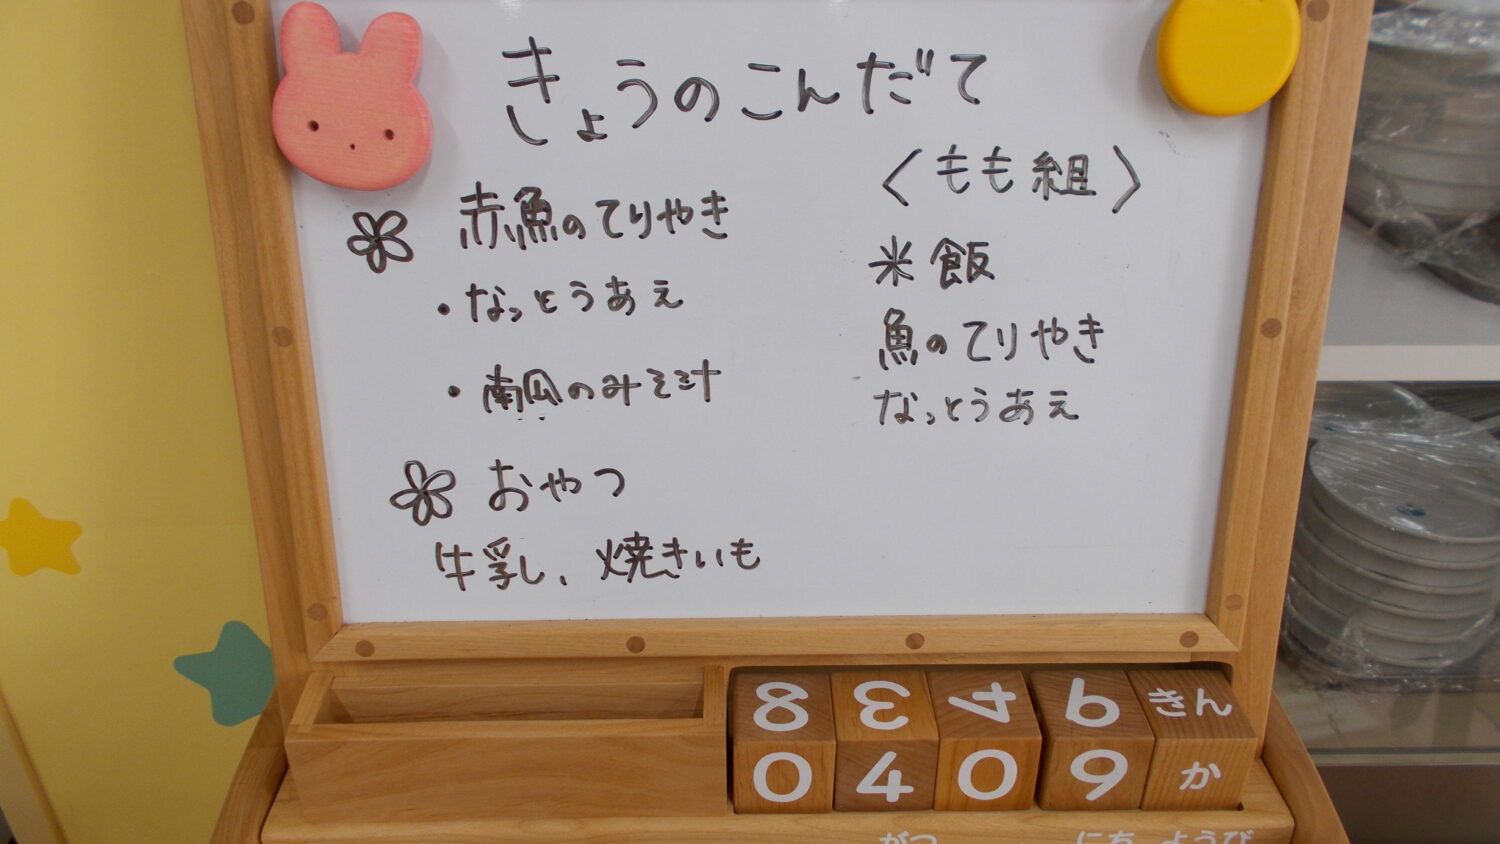 きょうのこんだて
赤魚のてりやき
・なっとうあえ
・南瓜のみそ汁
おやつ
牛乳、焼きいも
〈もも組〉
米飯
魚のてりやき
なっとうあえ
8 3 4 9 きん
0 4 0 9 か
がつ にち ようび